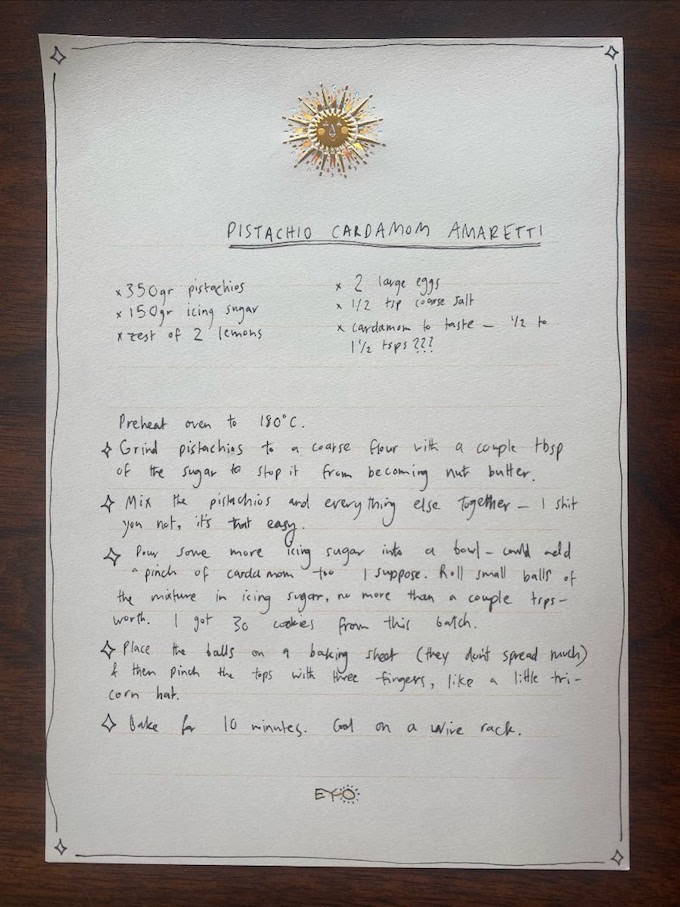 PISTACHIO CARDAMOM AMARETTI
x 350gr pistachios
x 150gr icing sugar
x zest of 2 lemons
x 2 large eggs
x 1/2 tsp coarse salt
x cardamom to taste – 1/2 to
1 1/2 tsps???
Preheat oven to 180°C.
Grind pistachios to a coarse flour with a couple tbsp
of the sugar to stop it from becoming nut butter.
Mix the pistachios and everything else together – I shit
you not, it's that easy.
Pour some more icing sugar into a bowl – could add
a pinch of cardamom too I suppose. Roll small balls of
the mixture in icing sugar, no more than a couple tsps-
worth. I got 30 cookies from this batch.
Place the balls on a baking sheet (they don't spread much)
& then pinch the tops with three fingers, like a little tri-
corn hat.
Bake for 10 minutes. Cool on a wire rack.
EYO